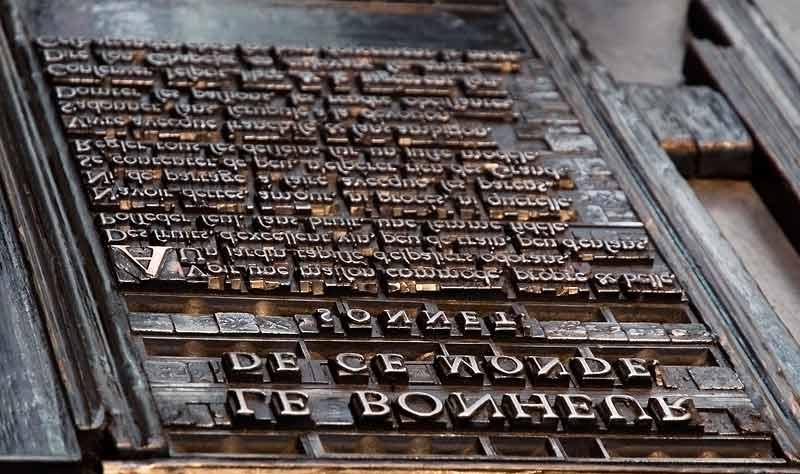 LE BONHEUR
DE CE MONDE
SONNET
Avoir une maison commode, propre & belle,
Un jardin tapissé d'espaliers odorans,
Des fruits, d'excellent vin, peu de train, peu d'enfans,
Posseder seul, sans bruit, une femme fidéle.
N'avoir dettes, amour, ni procès, ni querelle,
Ni de partage à faire avecque ses parens,
Se contenter de peu, n'espérer rien des Grands,
Régler tous ses desseins sur un juste modéle.
Vivre avecque franchise & sans ambition,
S'adonner sans scrupule à la dévotion,
Domter ses passions, les rendre obéissantes.
Conserver l'esprit libre, & le jugement
Dire son Chapelet